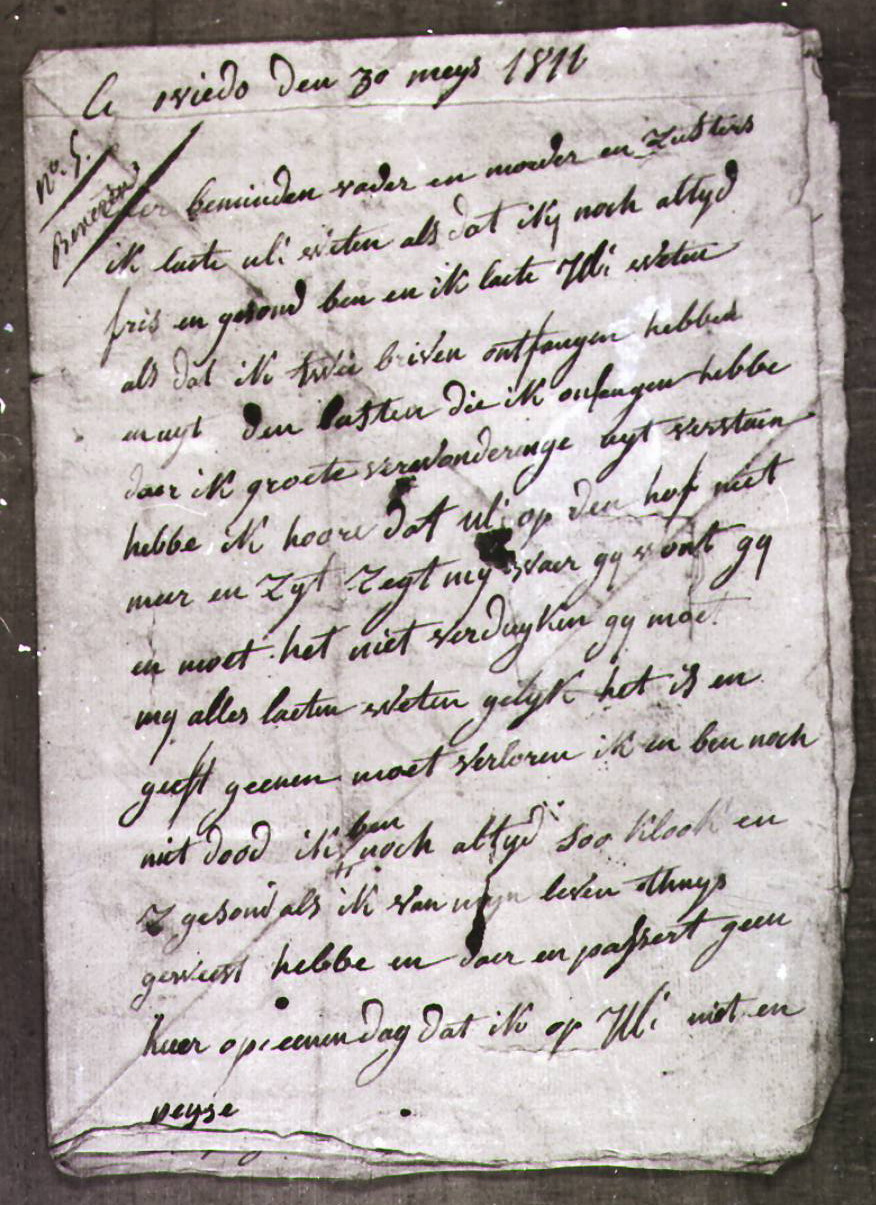 A oviedo den 30 meys 1811
No. 5.
Beveren
beminden vader en moeder en zusters
ik laete uli weten als dat ikij noch altyd
fris en gesond ben en ik laete Uli weten
als dat ik twee briven ontfangen hebben
den lasten die ik onfangen hebbe
daer ik groete verwonderinge uyt verstaen
hebbe ik hoore dat uli op den hof niet
meer en zyt zegt my waer gy wont gy
en moet het niet verduyken gy moet
my alles laeten weten gelyk het is en
geeft geenen moet verloren ik en ben noch
niet dood ik ben noch altyd soo klook en
gesond als ik van myn leven thuys
geweest hebbe en daer en passert geen
huer op eenen dag dat ik op Uli niet en
peyse